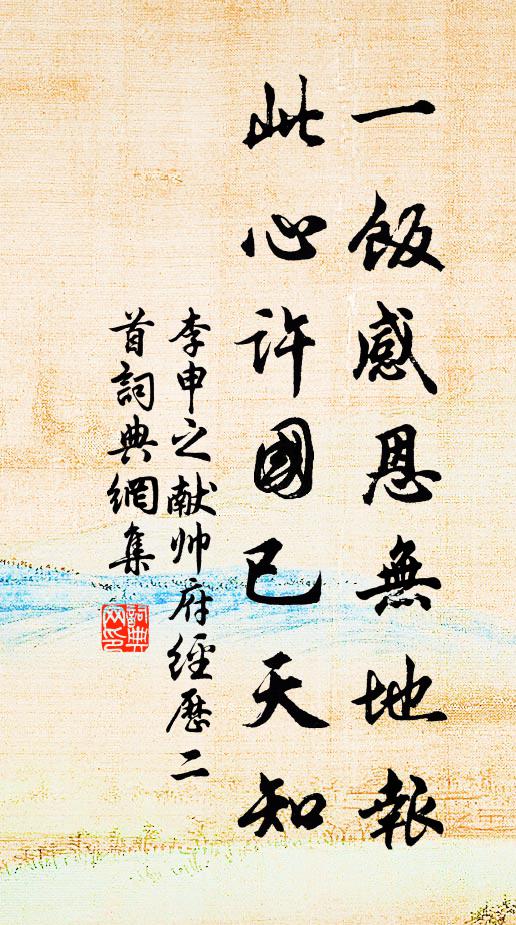 一飯感恩無地報
此心許國已天知
李申之献帅府經歷二
首詞典網集
詞典
网印